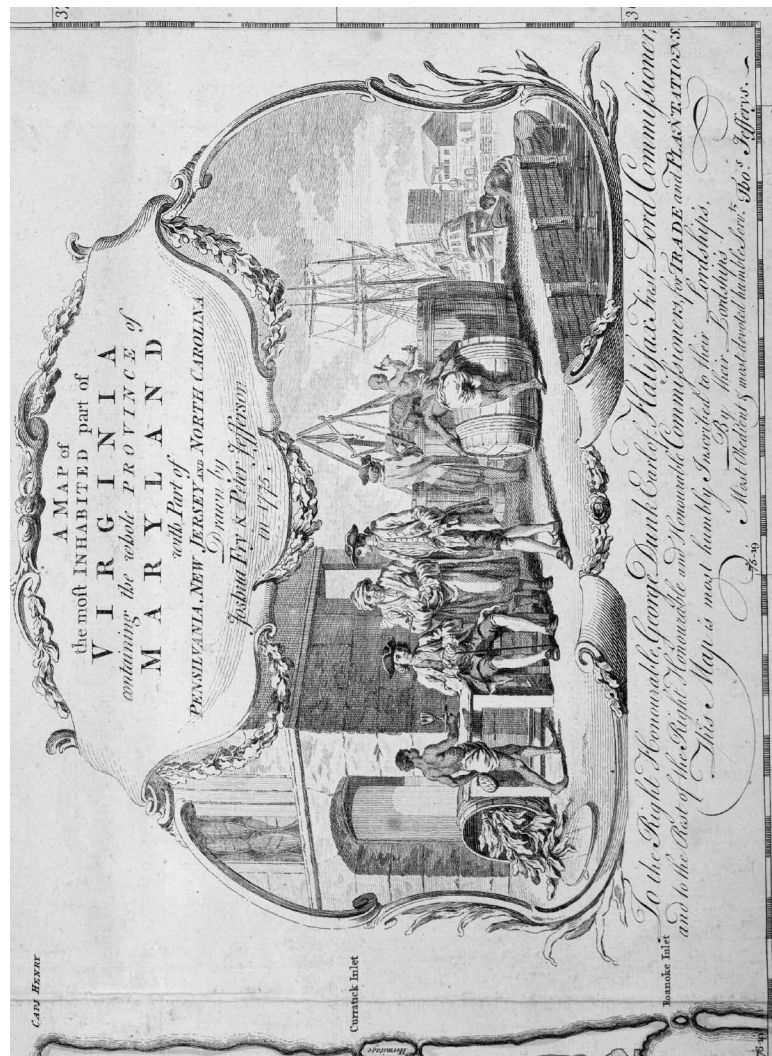 A MAP of
the moſt INHABITED part of
VIRGINIA
containing the whole PROVINCE of
MARYLAND
with Part of
PENSILVANIA, NEW JERSEY AND NORTH CAROLINA
Drawn by
Joshua Fry & Peter Jefferson
in 1775.
To the Right Honourable, George Dunk Earl of Halifax First Lord Commissioner,
and to the Rest of the Right Honourable and Honourable Commissioners, for TRADE and PLANTATIONS.
This Map is most humbly Inscribed to their Lordship's,
By their Lordship's
Most Obedient & most devoted humble Serv.t Tho.s Jefferys.
CAPE HENRY
Curratuck Inlet
Roanoke Inlet
Hermitage
75-19